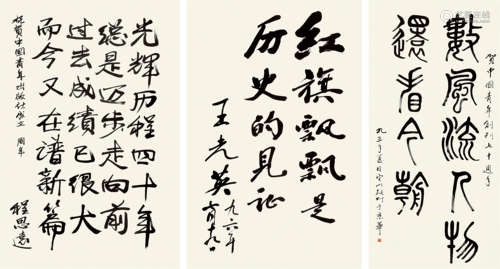 光辉历程四十年
總是迈步走向前
过去成績已很大
而今又在谱新篇
祝贺中国青年出版社成立 周年
程思遠
红旗飘飘是
历史的见证
王光英
九六年
數風流人物
還看今朝
贺中国青年創刊七十週年